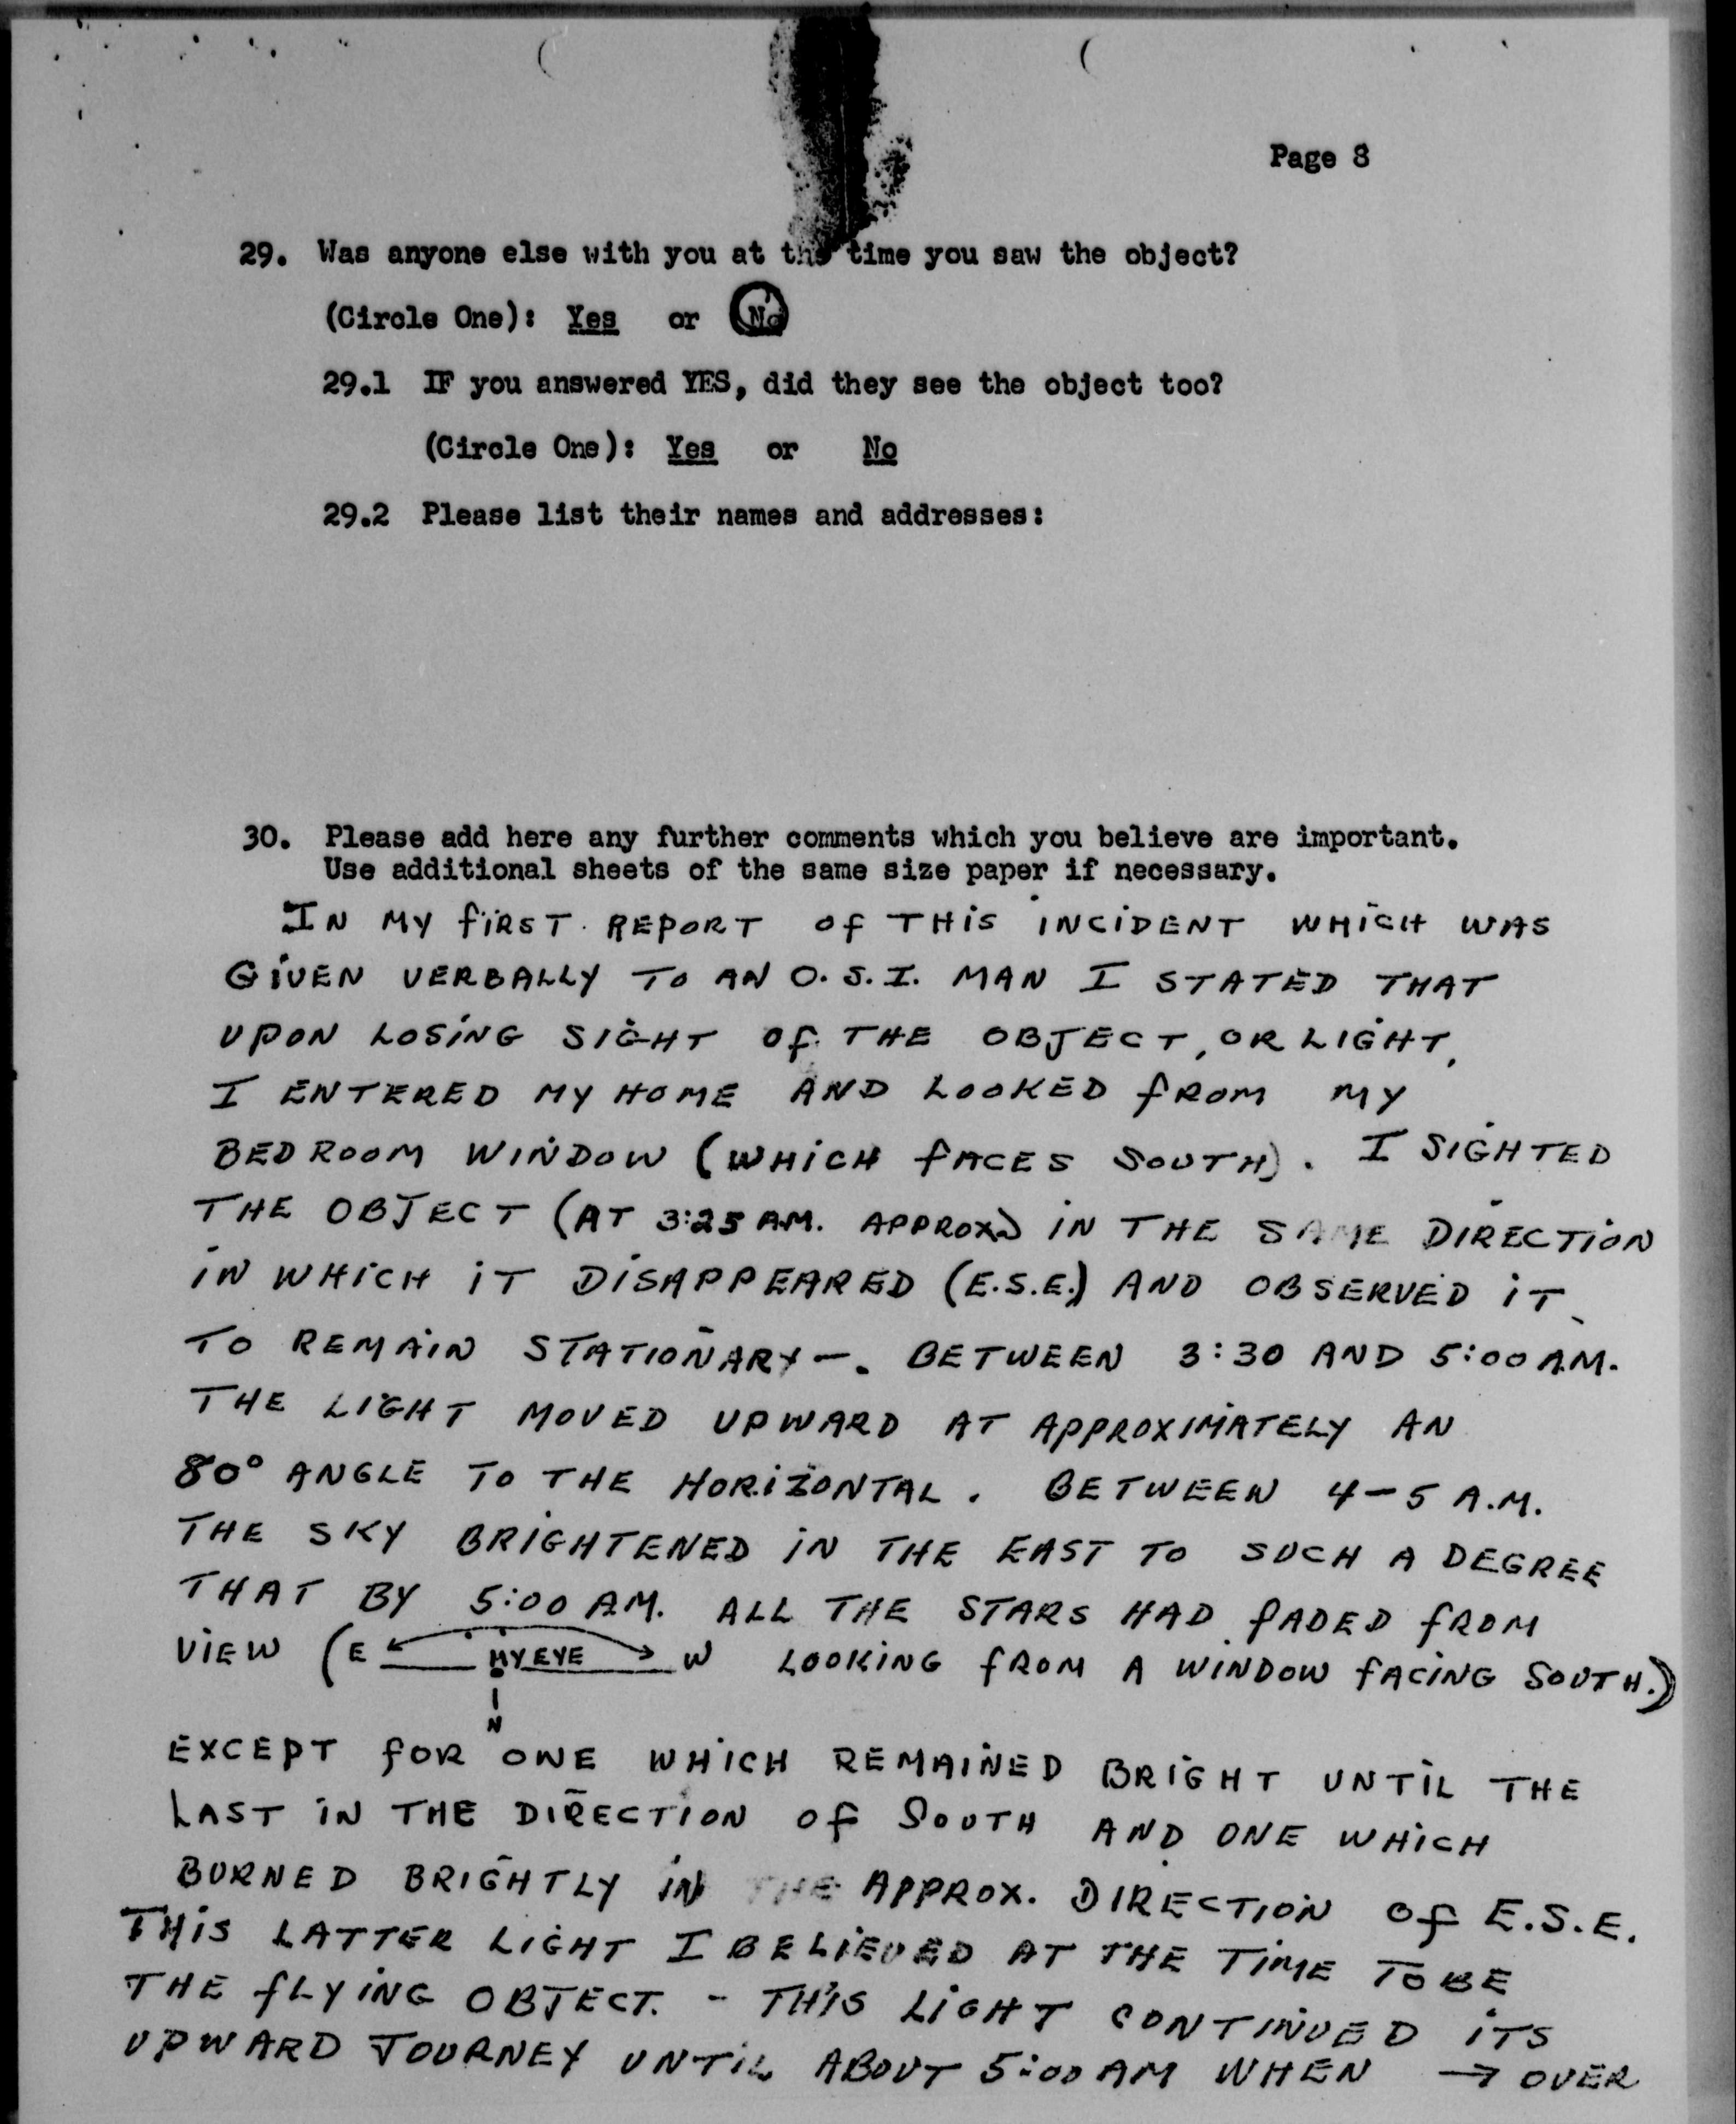 Page 8
29. Was anyone else with you at the time you saw the object?
(Circle One): Yes or No
29.1 IF you answered YES, did they see the object too?
(Circle One): Yes or No
29.2 Please list their names and addresses:
30. Please add here any further comments which you believe are important.
Use additional sheets of the same size paper if necessary.
IN MY FIRST REPORT OF THIS INCIDENT WHICH WAS
GIVEN VERBALLY TO AN O.S.I. MAN I STATED THAT
UPON LOSING SIGHT OF THE OBJECT, OR LIGHT,
I ENTERED MY HOME AND LOOKED FROM MY
BEDROOM WINDOW (WHICH FACES SOUTH). I SIGHTED
THE OBJECT (AT 3:25 A.M. APPROX.) IN THE SAME DIRECTION
IN WHICH IT DISAPPEARED (E.S.E.) AND OBSERVED IT
TO REMAIN STATIONARY—. BETWEEN 3:30 AND 5:00 A.M.
THE LIGHT MOVED UPWARD AT APPROXIMATELY AN
80° ANGLE TO THE HORIZONTAL. BETWEEN 4-5 A.M.
THE SKY BRIGHTENED IN THE EAST TO SUCH A DEGREE
THAT BY 5:00 A.M. ALL THE STARS HAD FADED FROM
VIEW (E MY EYE W LOOKING FROM A WINDOW FACING SOUTH.)
N
EXCEPT FOR ONE WHICH REMAINED BRIGHT UNTIL THE
LAST IN THE DIRECTION OF SOUTH AND ONE WHICH
BURNED BRIGHTLY IN THE APPROX. DIRECTION OF E.S.E.
THIS LATTER LIGHT I BELIEVED AT THE TIME TO BE
THE FLYING OBJECT. - THIS LIGHT CONTINUED ITS
UPWARD JOURNEY UNTIL ABOUT 5:00 AM WHEN → OVER